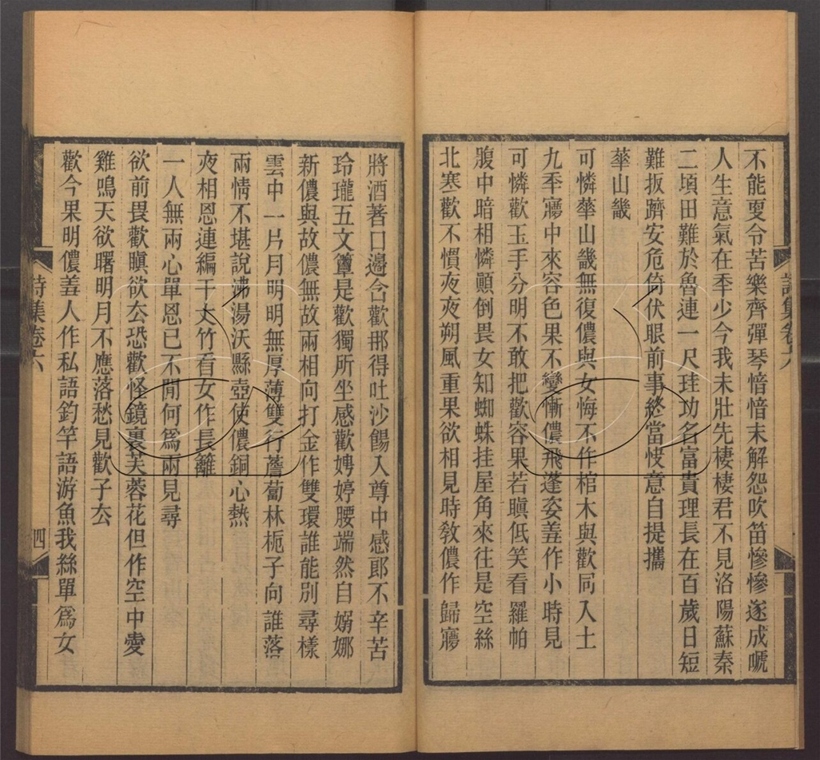 不能耎令苦樂齊彈琴愔愔未解怨吹笛慘慘遂成嗁
人生意氣在秊少今我未壯先棲棲君不見洛陽蘇秦
二頃田難於魯連一尺珪功名富貴理長在百歲日短
難扳躋安危倚伏眼前事終當快意自提攜
華山畿
可憐華山畿無復儂與女悔不作棺木與歡同入土
九秊寢中來容色果不變慚儂飛蓬姿羞作小時見
可憐歡玉手分明不敢把歡容果若瞋低笑看羅帕
腹中暗相憐顚倒畏女知蜘蛛挂屋角來往是空絲
北寒歡不慣夜夜朔風重果欲相見時敎儂作歸寢
將酒著口邊含歡那得吐沙餳入尊中感郎不辛苦
玲瓏五文簟是歡獨所坐感歡娉婷腰端然自嫋娜
新儂與故儂無故兩相向打金作雙環誰能別尋樣
雲中一片月明明無厚薄雙行薝蔔林梔子向誰落
兩情不堪說沸湯沃縣壺使儂銅心熱
夜相恩連編干大竹看女作長籬
一人無兩心單恩已不閒何爲兩見尋
欲前畏歡瞋欲去恐歡怪鏡裏芙蓉花但作空中愛
雞鳴天欲曙明月不應落愁見歡子去
歡今果明儂羞人作私語釣竿語游魚我絲單爲女
詩集卷六
四